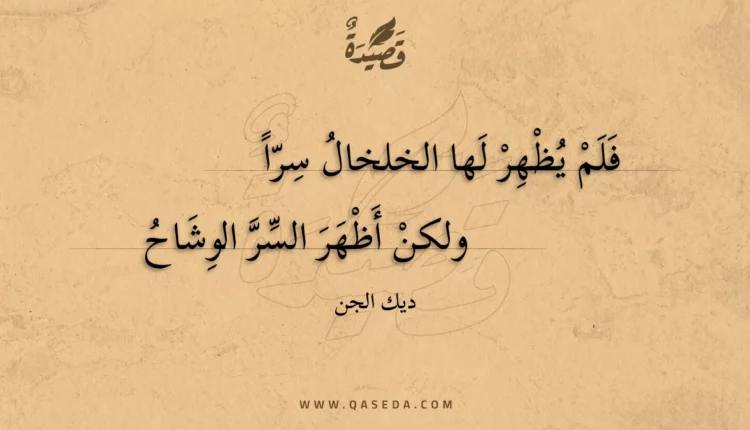 قَصِيْدَةٌ
فَلَمْ يُظْهِرْ لَها الخلخالُ سِرّاً
ولكنْ أَظْهَرَ السِّرَّ الوِشَاحُ
ديك الجن
WWW.QASEDA.COM